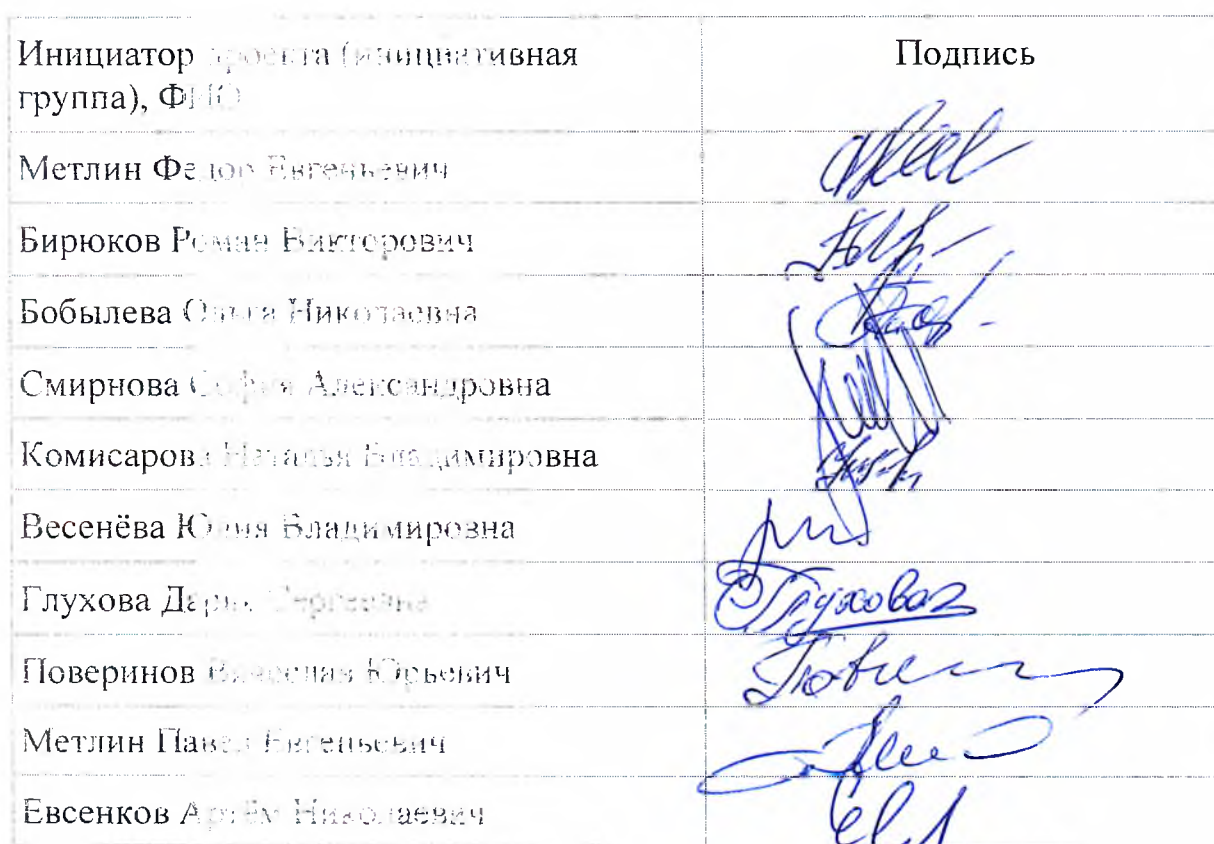 Инициатор проекта (инициативная
группа), ФИО
Подпись
Метлин Федор Евгеньевич
Бирюков Роман Викторович
Бобылева Ольга Николаевна
Смирнова София Александровна
Комисарова Наталья Владимировна
Весенёва Юлия Владимировна
Глухова Дарья Сергеевна
Глухова
Поверинов Вячеслав Юрьевич
Метлин Павел Евгеньевич
Евсенков Артём Николаевич